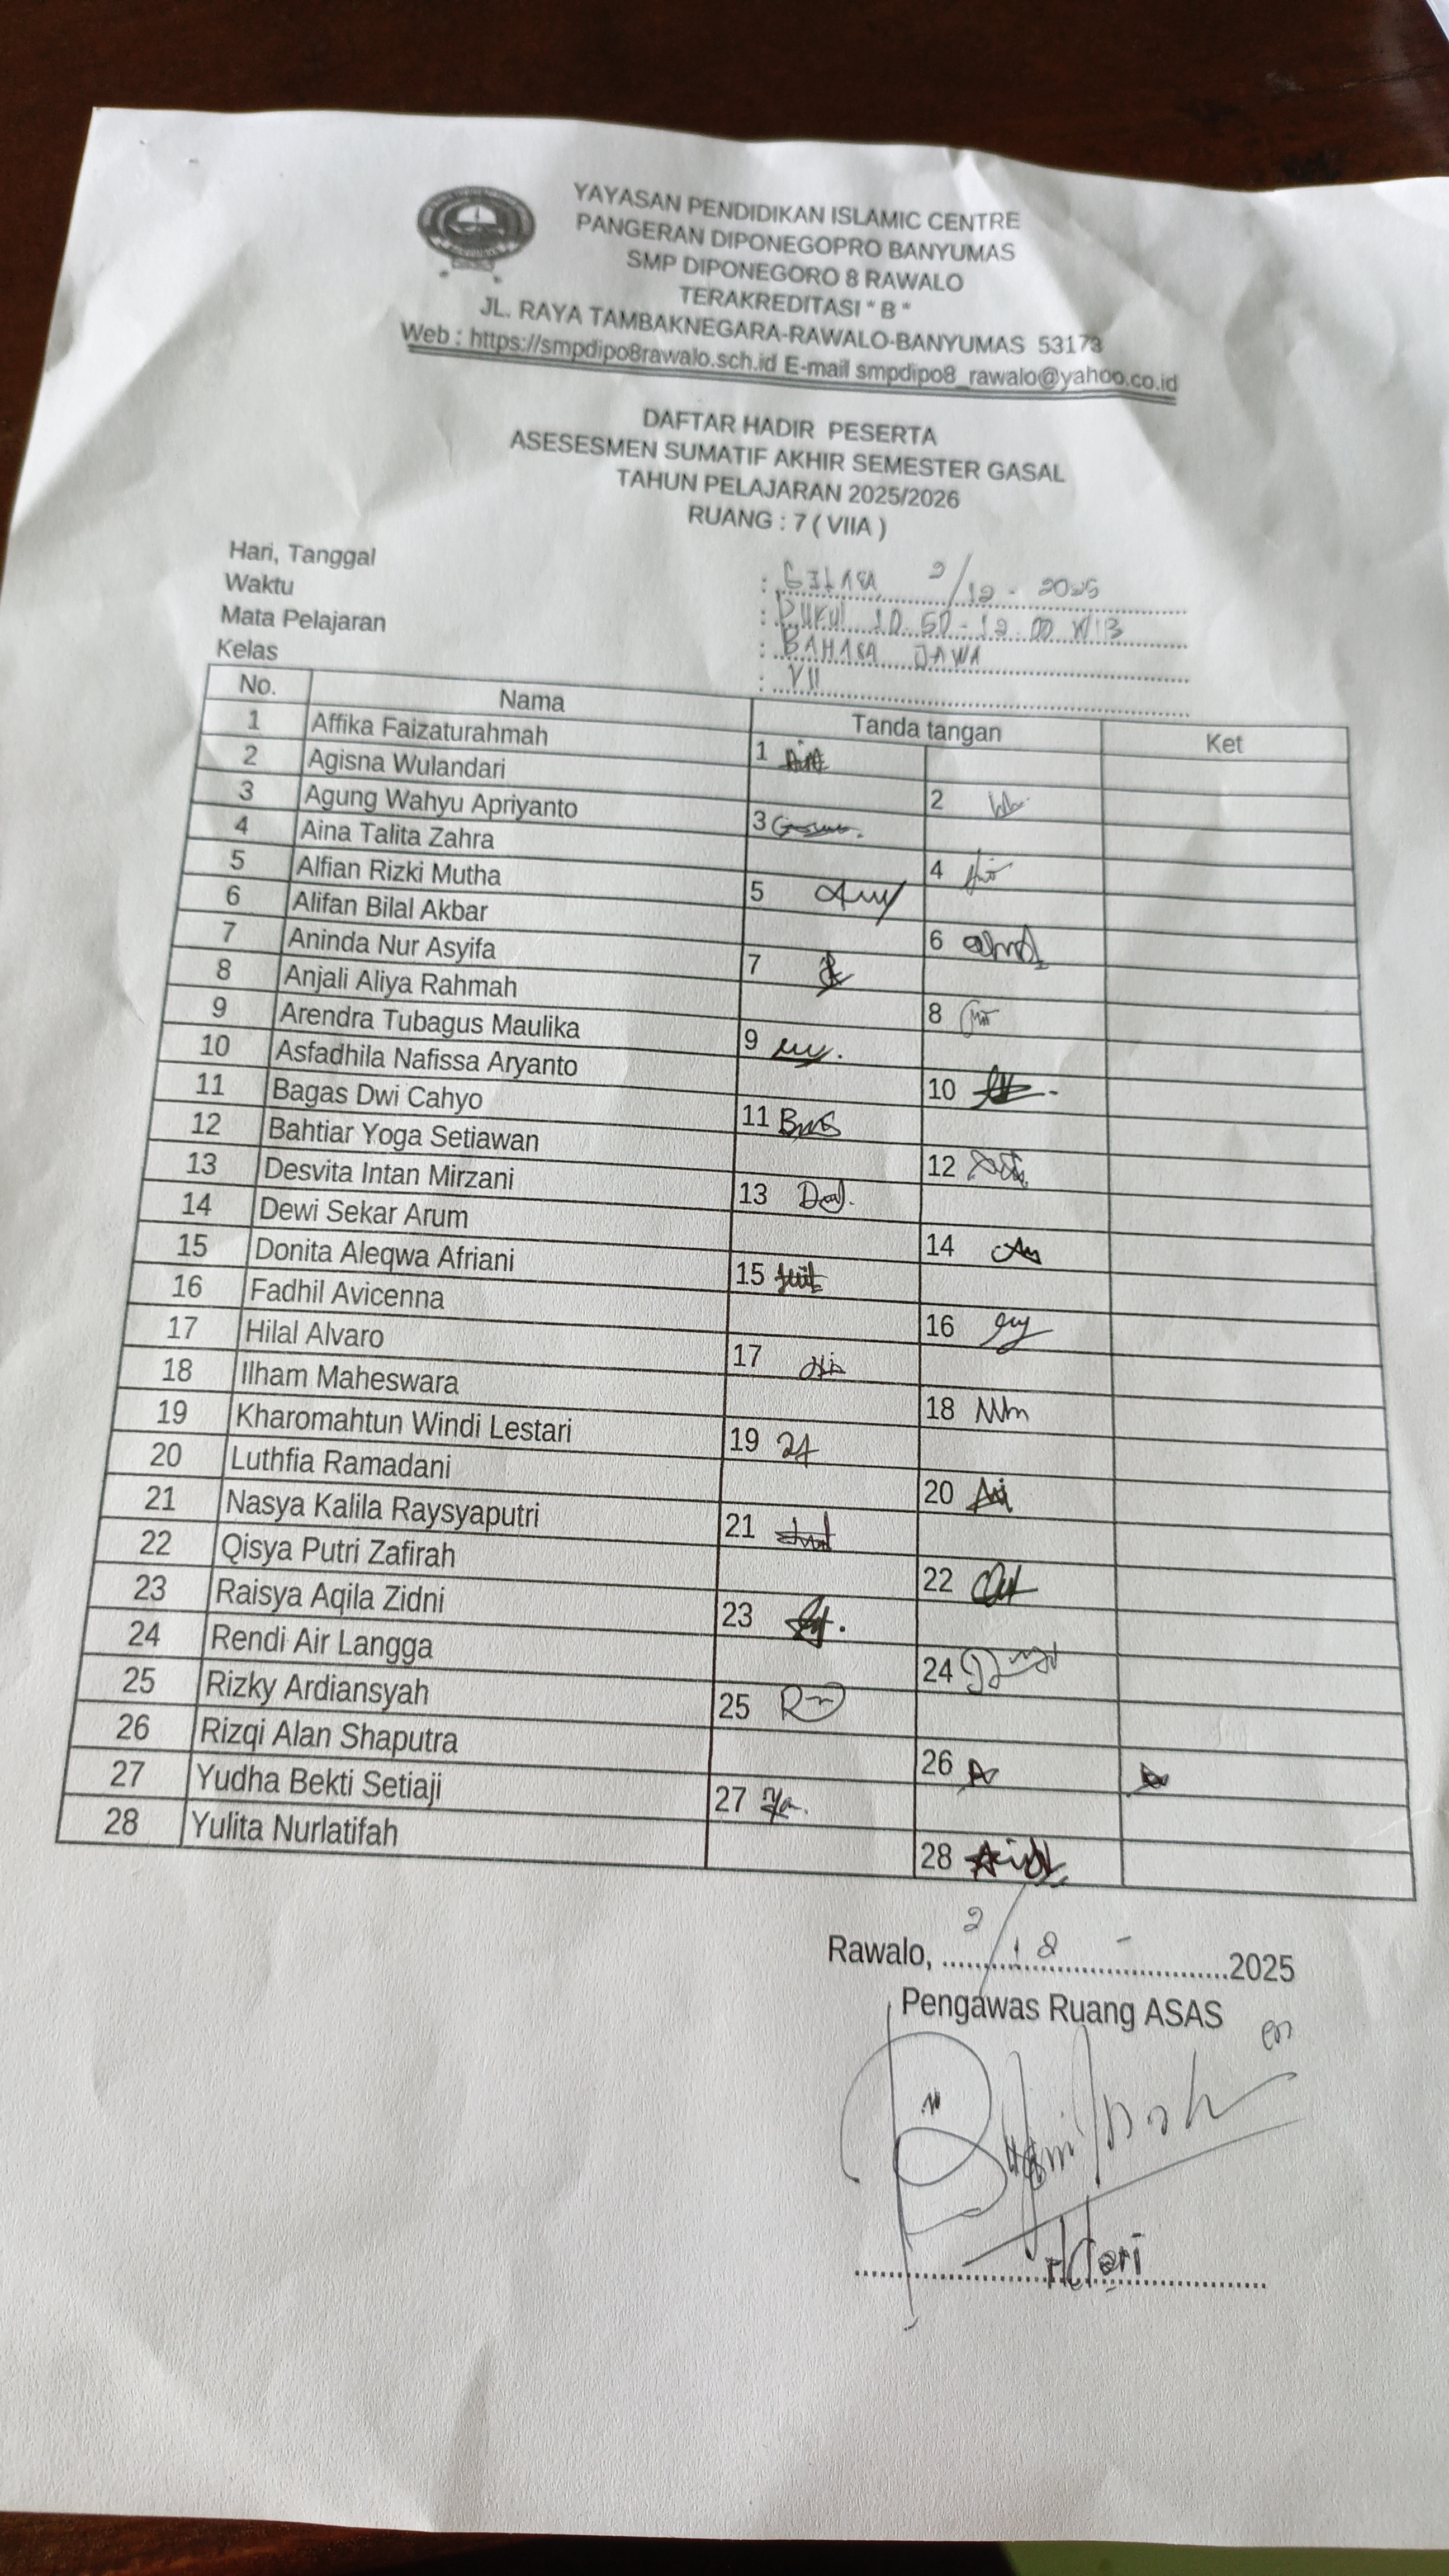 YAYASAN PENDIDIKAN ISLAMIC CENTRE
PANGERAN DIPONEGOPRO BANYUMAS
SMP DIPONEGORO 8 RAWALO
TERAKREDITASI " B "
JL. RAYA TAMBAKNEGARA-RAWALO-BANYUMAS 53173
Web : https://smpdipo8rawalo.sch.id E-mail smpdipo8_rawalo@yahoo.co.id
DAFTAR HADIR PESERTA
ASESESMEN SUMATIF AKHIR SEMESTER GASAL
TAHUN PELAJARAN 2025/2026
RUANG : 7 ( VIIA )
Hari, Tanggal : SELASA 2/12 - 2025
Waktu : PUKUL 10.50 - 12.00 WIB
Mata Pelajaran : BAHASA JAWA
Kelas : VII
No. Nama Tanda tangan Ket
1 Affika Faizaturahmah 1
2 Agisna Wulandari 2
3 Agung Wahyu Apriyanto 3
4 Aina Talita Zahra 4
5 Alfian Rizki Mutha 5
6 Alifan Bilal Akbar 6
7 Aninda Nur Asyifa 7
8 Anjali Aliya Rahmah 8
9 Arendra Tubagus Maulika 9
10 Asfadhila Nafissa Aryanto 10
11 Bagas Dwi Cahyo 11
12 Bahtiar Yoga Setiawan 12
13 Desvita Intan Mirzani 13
14 Dewi Sekar Arum 14
15 Donita Aleqwa Afriani 15
16 Fadhil Avicenna 16
17 Hilal Alvaro 17
18 Ilham Maheswara 18
19 Kharomahtun Windi Lestari 19
20 Luthfia Ramadani 20
21 Nasya Kalila Raysyaputri 21
22 Qisya Putri Zafirah 22
23 Raisya Aqila Zidni 23
24 Rendi Air Langga 24
25 Rizky Ardiansyah 25
26 Rizqi Alan Shaputra 26
27 Yudha Bekti Setiaji 27
28 Yulita Nurlatifah 28
Rawalo, 2/12 - 2025
Pengawas Ruang ASAS